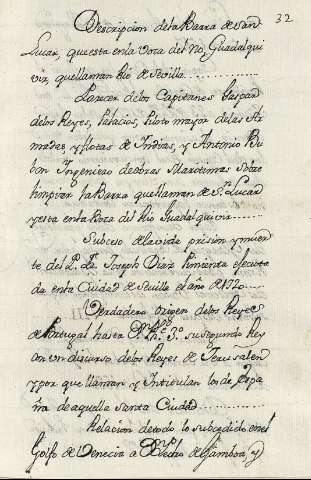 32
Descripcion de la Barra de San
Lucar, que esta en la voca del rio, Guadalqui
vir, que llaman Rio de Sevilla
Parecer de los Capitanes Gaspar
de los Reyes, Palacios, Piloto mayor de las Ar
madas, y flotas de Indias, y Antonio Bu
bon Ingeniero de obras Maritimas sobre
limpiar la Barra que llaman de Sn. Lucar
y esta en la Boca del Rio Guadalquivir
Subceso de la vida prision y muer
te del P. Joseph Diaz Pimienta efecuta
da en la Ciudad de Sevilla el año de 1720
Verdadero origen de los Reyes
de Portugal hasta 3.º su segundo Rey
con un discurso de los Reyes de Jerusalen
y por que llaman y Intitulan los de Espa
ña de aquella Santa Ciudad
Relacion de todo lo subcedido en el
Golfo de Venecia a Dn. Pedro de Gamboa, y